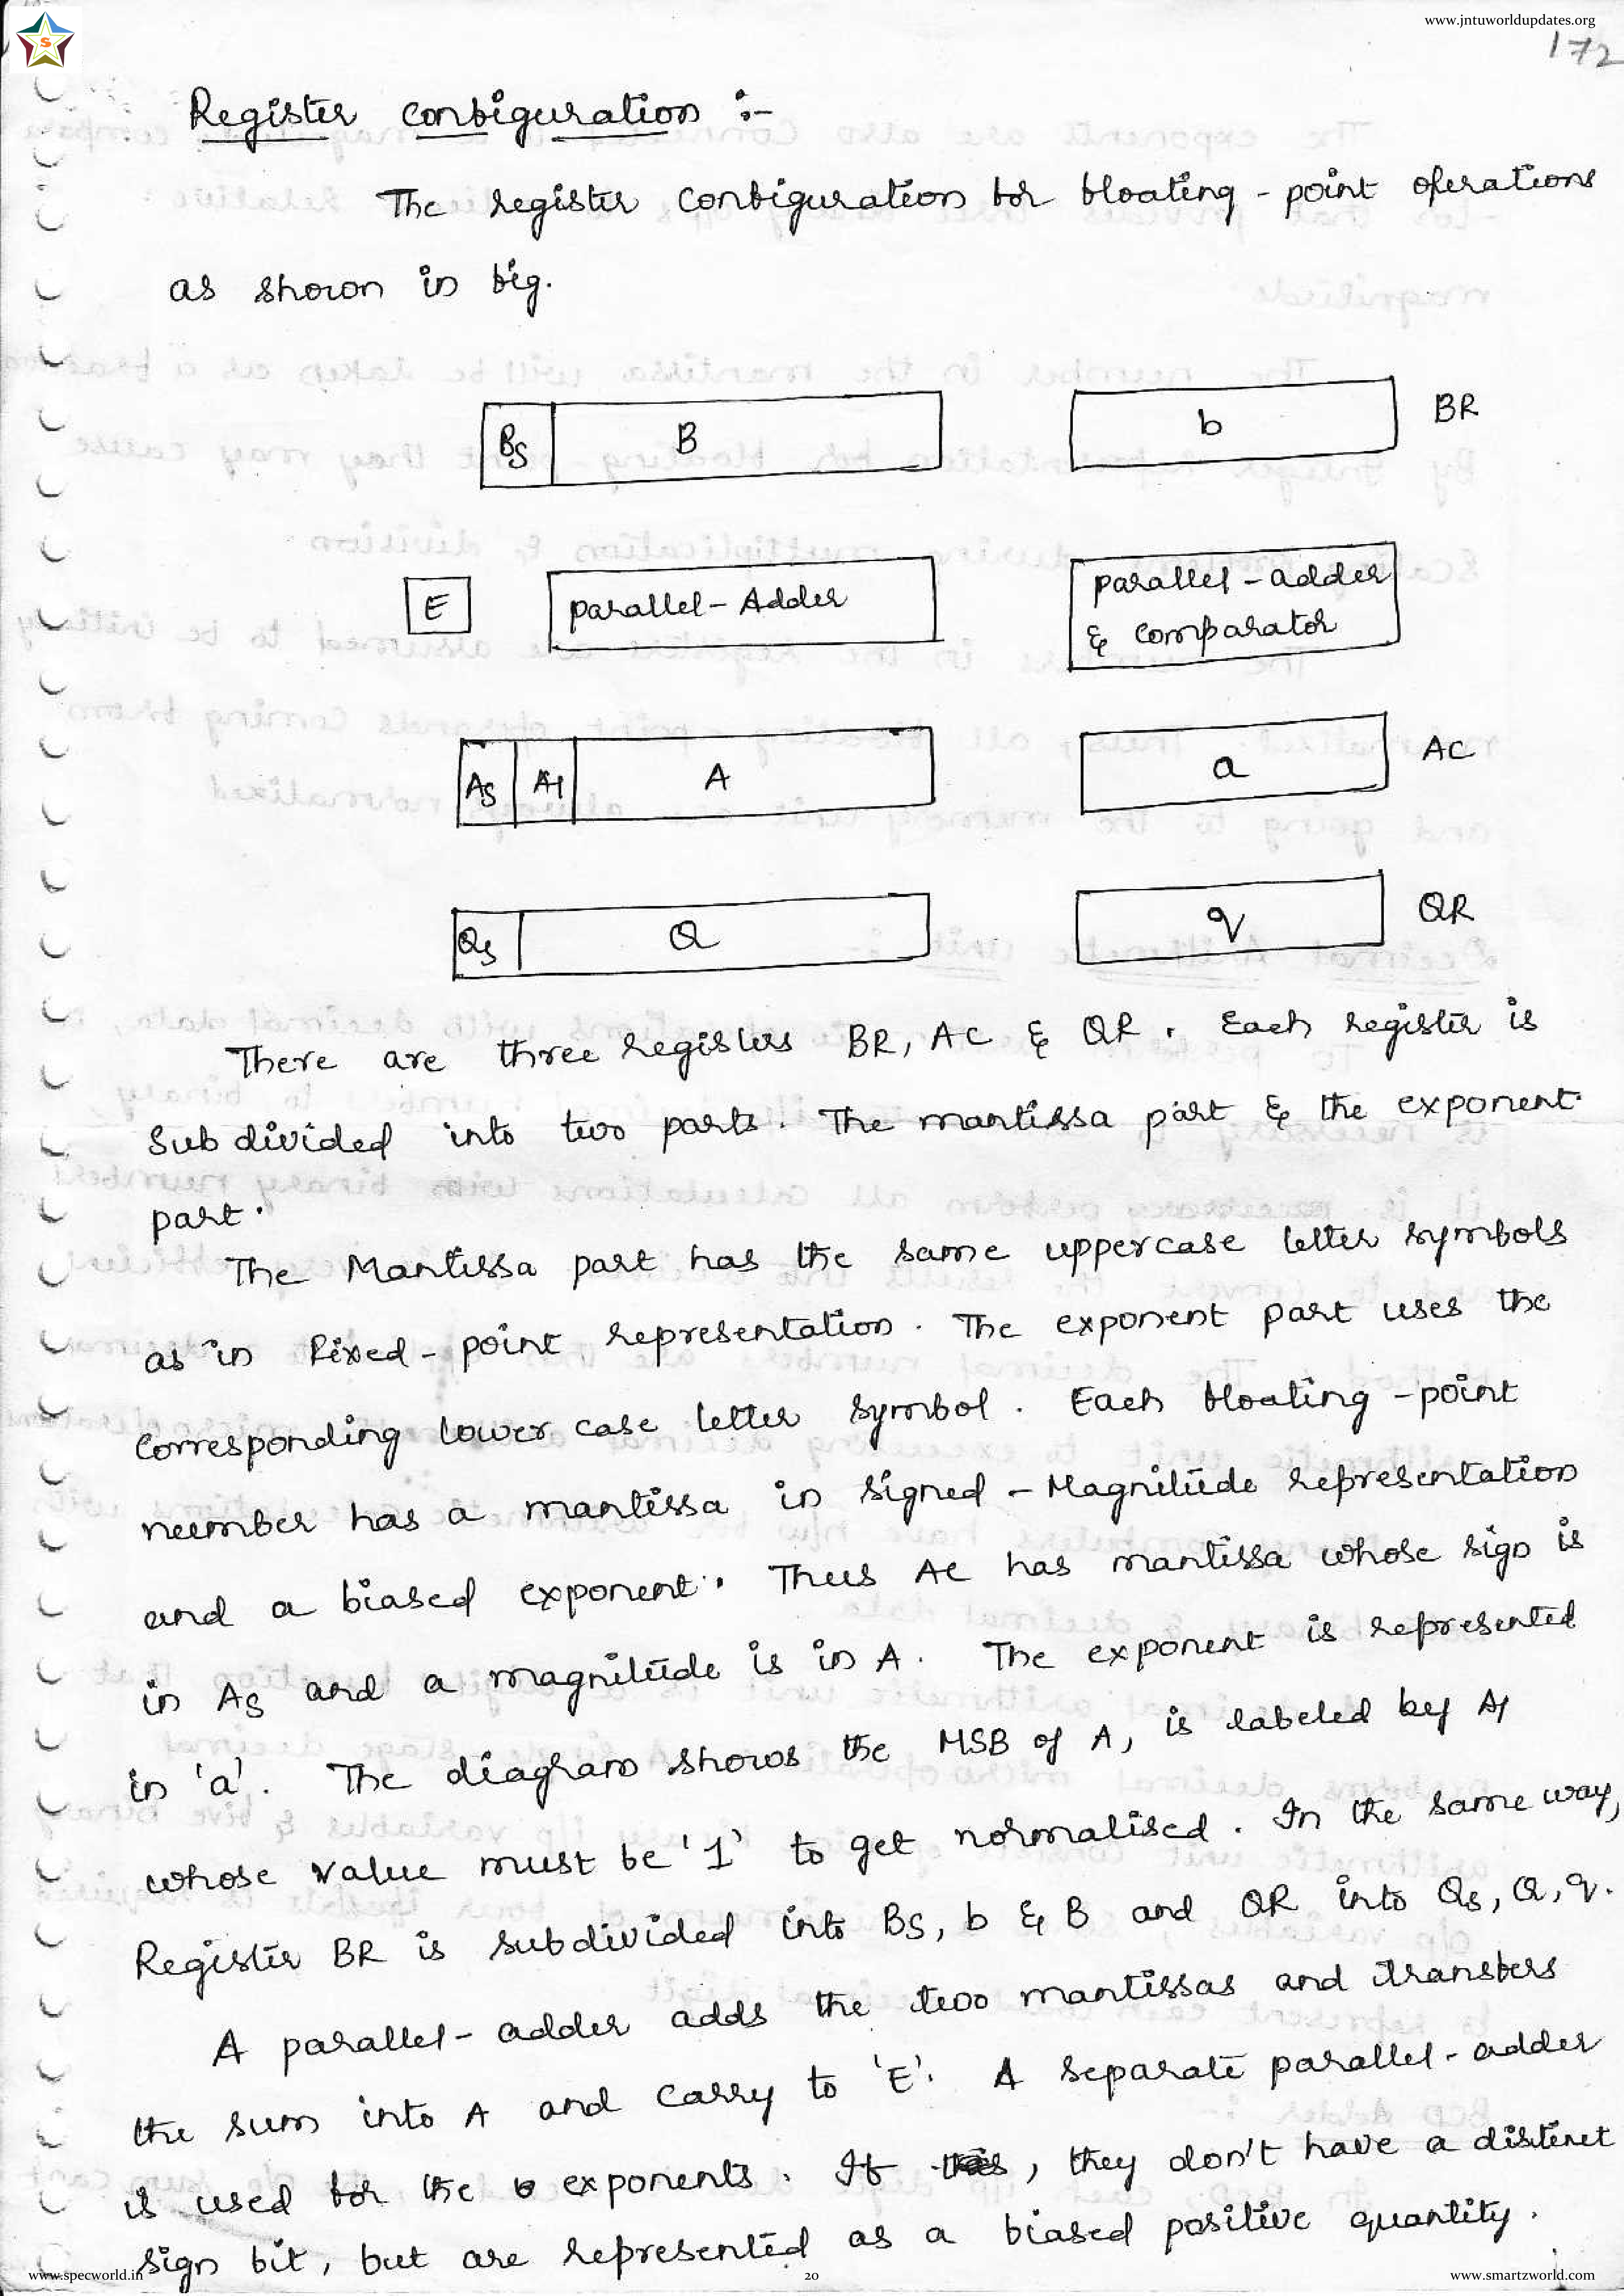 www.jntuworldupdates.org
S
172
Register configuration :-
The register configuration for floating - point operations
as shown in fig.
Bs B b BR
E parallel - Adder parallel - adder
& comparator
As A1 A a AC
Qs Q q QR
There are three registers BR, AC & QR. Each register is
Sub divided into two parts. The mantissa part & the exponent
part.
The Mantissa part has the same uppercase letter symbols
as in Fixed - point representation. The exponent part uses the
corresponding lower case letter symbol. Each floating - point
number has a mantissa in signed - Magnitude representation
and a biased exponent. Thus AC has mantissa whose sign is
in As and a magnitude is in A. The exponent is represented
in 'a'. The diagram shows the MSB of A, is labeled by A1
whose value must be '1' to get normalised. In the same way,
Register BR is subdivided into BS, b & B and QR into Qs, Q, q.
A parallel - adder adds the two mantissas and transfers
the sum into A and carry to 'E'. A separate parallel - adder
is used for the exponents. If , they don't have a distinct
sign bit, but are represented as a biased positive quantity.
www.specworld.in 20 www.smartzworld.com